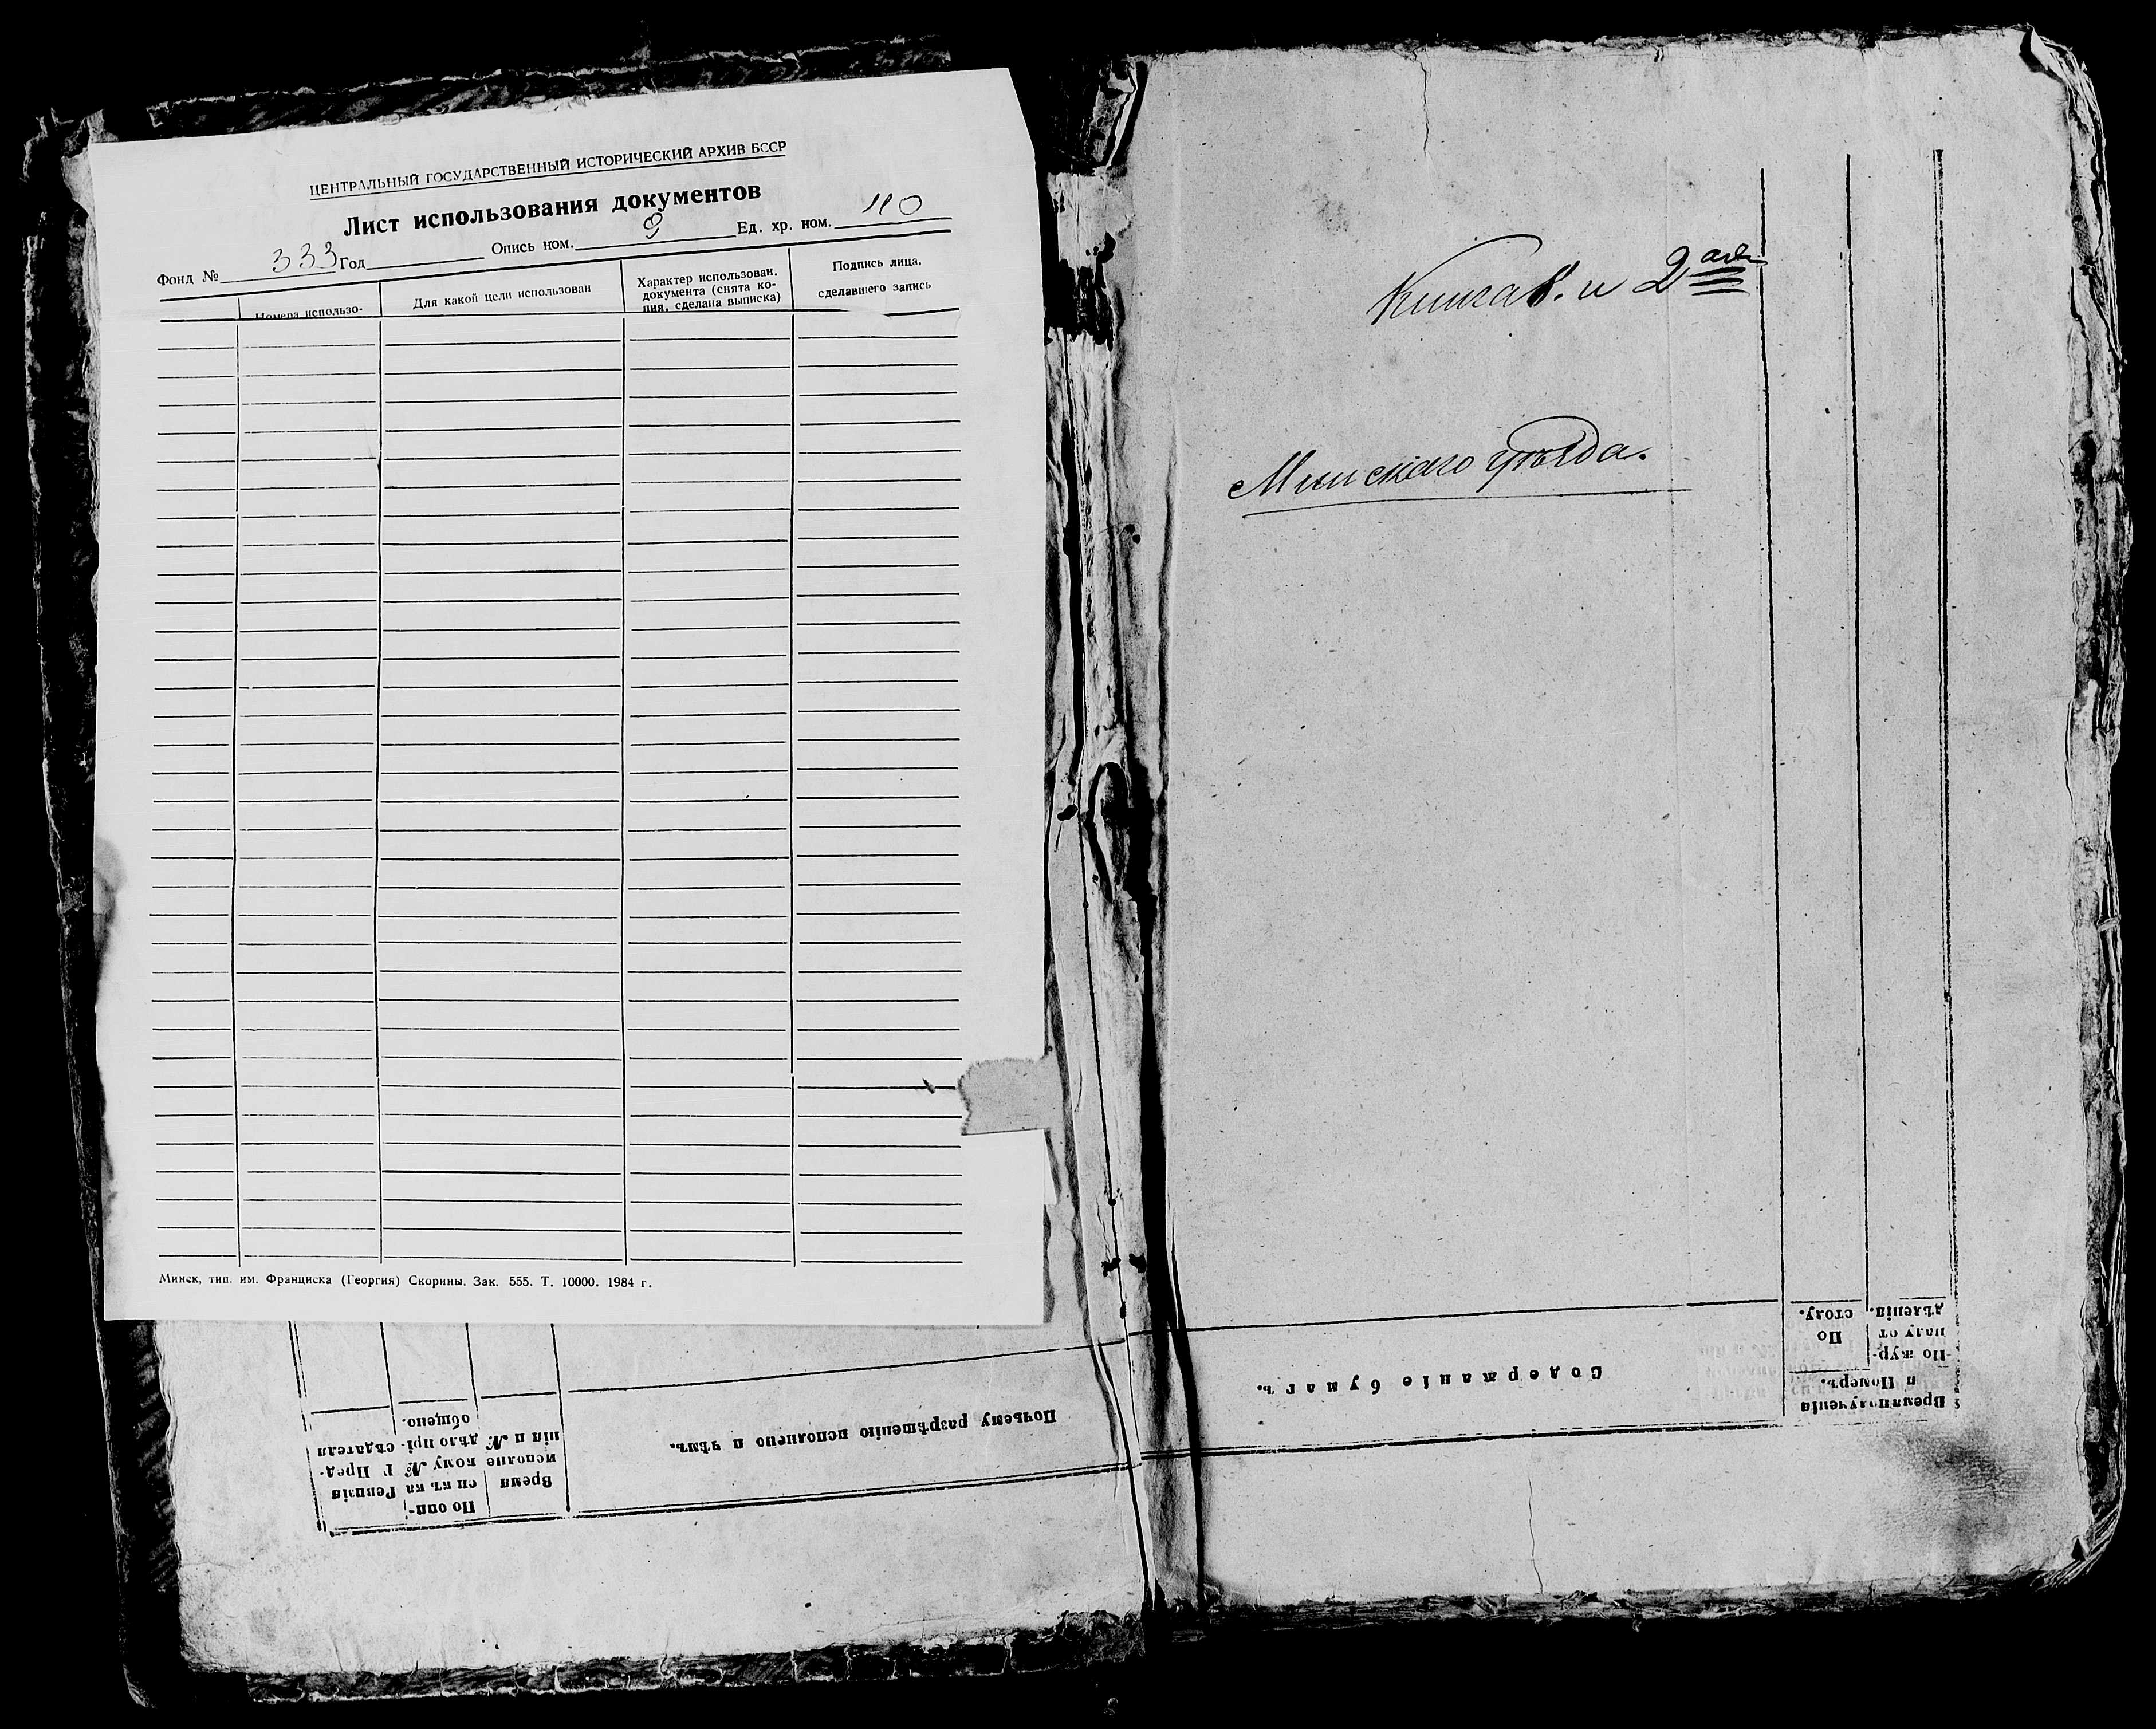 ЦЕНТРАЛЬНЫЙ ГОСУДАРСТВЕННЫЙ ИСТОРИЧЕСКИЙ АРХИВ БССР
Лист использования документов
Фонд № 333 Год Опись ном. 9 Ед. хр. ном. 110
Номера использо-
Для какой цели использован
Характер использован.
документа (снята ко-
пия, сделана выписка)
Подпись лица,
сделавшего запись
Минск, тип. им. Франциска (Георгия) Скорины. Зак. 555. Т. 10000. 1984 г.
Книга и 2ая
Минскаго уѣзда.
Время получения
и Номеръ.
По жур-
налу от
дѣленія.
По
столу.
Содержаніе бумагъ.
Почьему разрѣшенію исполнено и чѣмъ.
Время
исполне
нія и №
По опи-
си къ ка
кому №
дѣло прі.
общено.
Ревизія
Г Пред-
сѣдателя